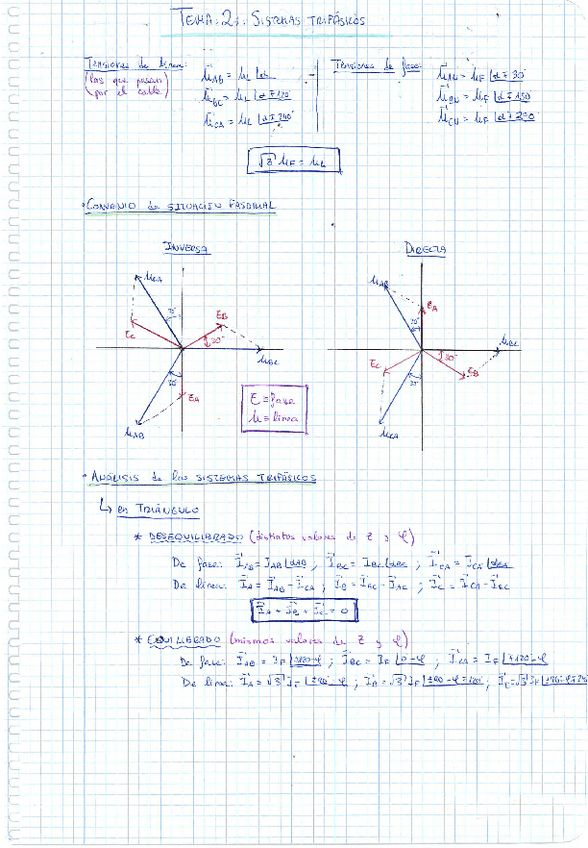 TEMA 2: SISTEMAS TRIFÁSICOS
Tensiones de línea:
(las que pasan
por el cable)
U⃗AB = UL ∠α
U⃗BC = UL ∠α∓120°
U⃗CA = UL ∠α∓240°
Tensiones de fase:
U⃗AN = UF ∠α∓30°
U⃗BN = UF ∠α∓150°
U⃗CN = UF
√3 UF = UL
· CONVENIO de SITUACIÓN FASORIAL
INVERSA
UCA
EC
EB
30°
UBC
EA
UAB
E = fase
U = línea
DIRECTA
UAB
EA
30°
UBC
EC
EB
UCA
· ANÁLISIS de los SISTEMAS TRIFÁSICOS
↳ en TRIÁNGULO
* DESEQUILIBRADO (distintos valores de Z y φ)
De fase: I⃗AB = IAB ∠αAB ; I⃗BC = IBC ∠αBC ; I⃗CA = ICA ∠αCA
De línea: I⃗A = I⃗AB - I⃗CA ; I⃗B = I⃗BC - I⃗AB ; I⃗C = I⃗CA - I⃗BC
I⃗A + I⃗B + I⃗C = 0
* EQUILIBRADO (mismos valores de Z y φ)
De fase: I⃗AB = IF ∠±120-φ ; I⃗BC = IF ∠0-φ ; I⃗CA = IF ∠∓120-φ
De línea: I⃗A = √3 IF ∠±90-φ ; I⃗B = √3 IF ∠±90-φ∓120° ; I⃗C = √3 IF